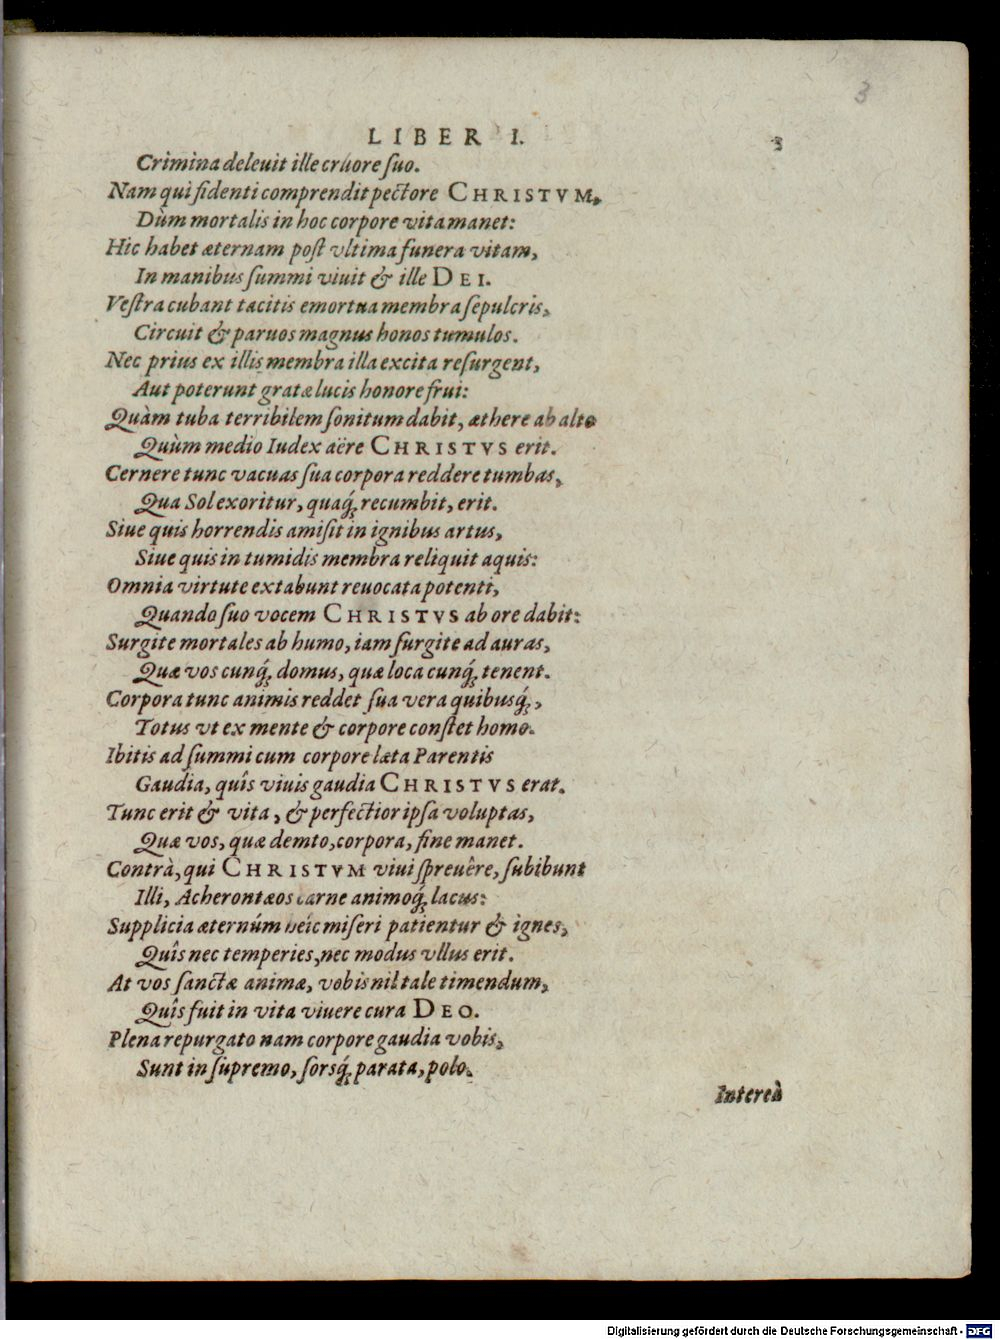 3
LIBER I. 3
Crimina deleuit ille cruore suo.
Nam qui fidenti comprendit pectore CHRISTVM,
Dùm mortalis in hoc corpore vita manet:
Hic habet æternam post vltima funera vitam,
In manibus summi viuit & ille DEI.
Vestra cubant tacitis emortua membra sepulcris,
Circuit & paruos magnus honos tumulos.
Nec prius ex illis membra illa excita resurgent,
Aut poterunt gratæ lucis honore frui:
Quàm tuba terribilem sonitum dabit, æthere ab alto
Quùm medio Iudex aëre CHRISTVS erit.
Cernere tunc vacuas sua corpora reddere tumbas,
Qua Sol exoritur, quaq́; recumbit, erit.
Siue quis horrendis amisit in ignibus artus,
Siue quis in tumidis membra reliquit aquis:
Omnia virtute extabunt reuocata potenti,
Quando suo vocem CHRISTVS ab ore dabit:
Surgite mortales ab humo, iam surgite ad auras,
Quæ vos cunq́; domus, quæ loca cunq́; tenent.
Corpora tunc animis reddet sua vera quibusq́;,
Totus vt ex mente & corpore constet homo.
Ibitis ad summi cum corpore læta Parentis
Gaudia, quîs viuis gaudia CHRISTVS erat.
Tunc erit & vita, & perfectior ipsa voluptas,
Quæ vos, quæ demto, corpora, fine manet.
Contrà, qui CHRISTVM viui spreuêre, subibunt
Illi, Acherontæos carne animoq́; lacus:
Supplicia æternúm heíc miseri patientur & ignes,
Quîs nec temperies, nec modus vllus erit.
At vos sanctæ animæ, vobis nil tale timendum,
Quîs fuit in vita viuere cura DEO.
Plena repurgato nam corpore gaudia vobis,
Sunt in supremo, sorsq́; parata, polo.
Intereà
Digitalisierung gefördert durch die Deutsche Forschungsgemeinschaft - DFG